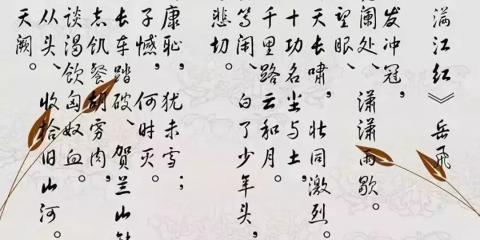 满江红》 岳飞
发冲冠，
阑处、潇潇雨歇。
望眼、
天长啸，壮同激烈。
十功名尘与土，
千里路云和月。
等闲、白了少年头，
悲切。
康耻，犹未雪；
子憾，何时灭。
长车踏破、贺兰山
志饥餐胡虏肉，
谈渴饮匈奴血。
从头、收拾旧山河。
天阙。